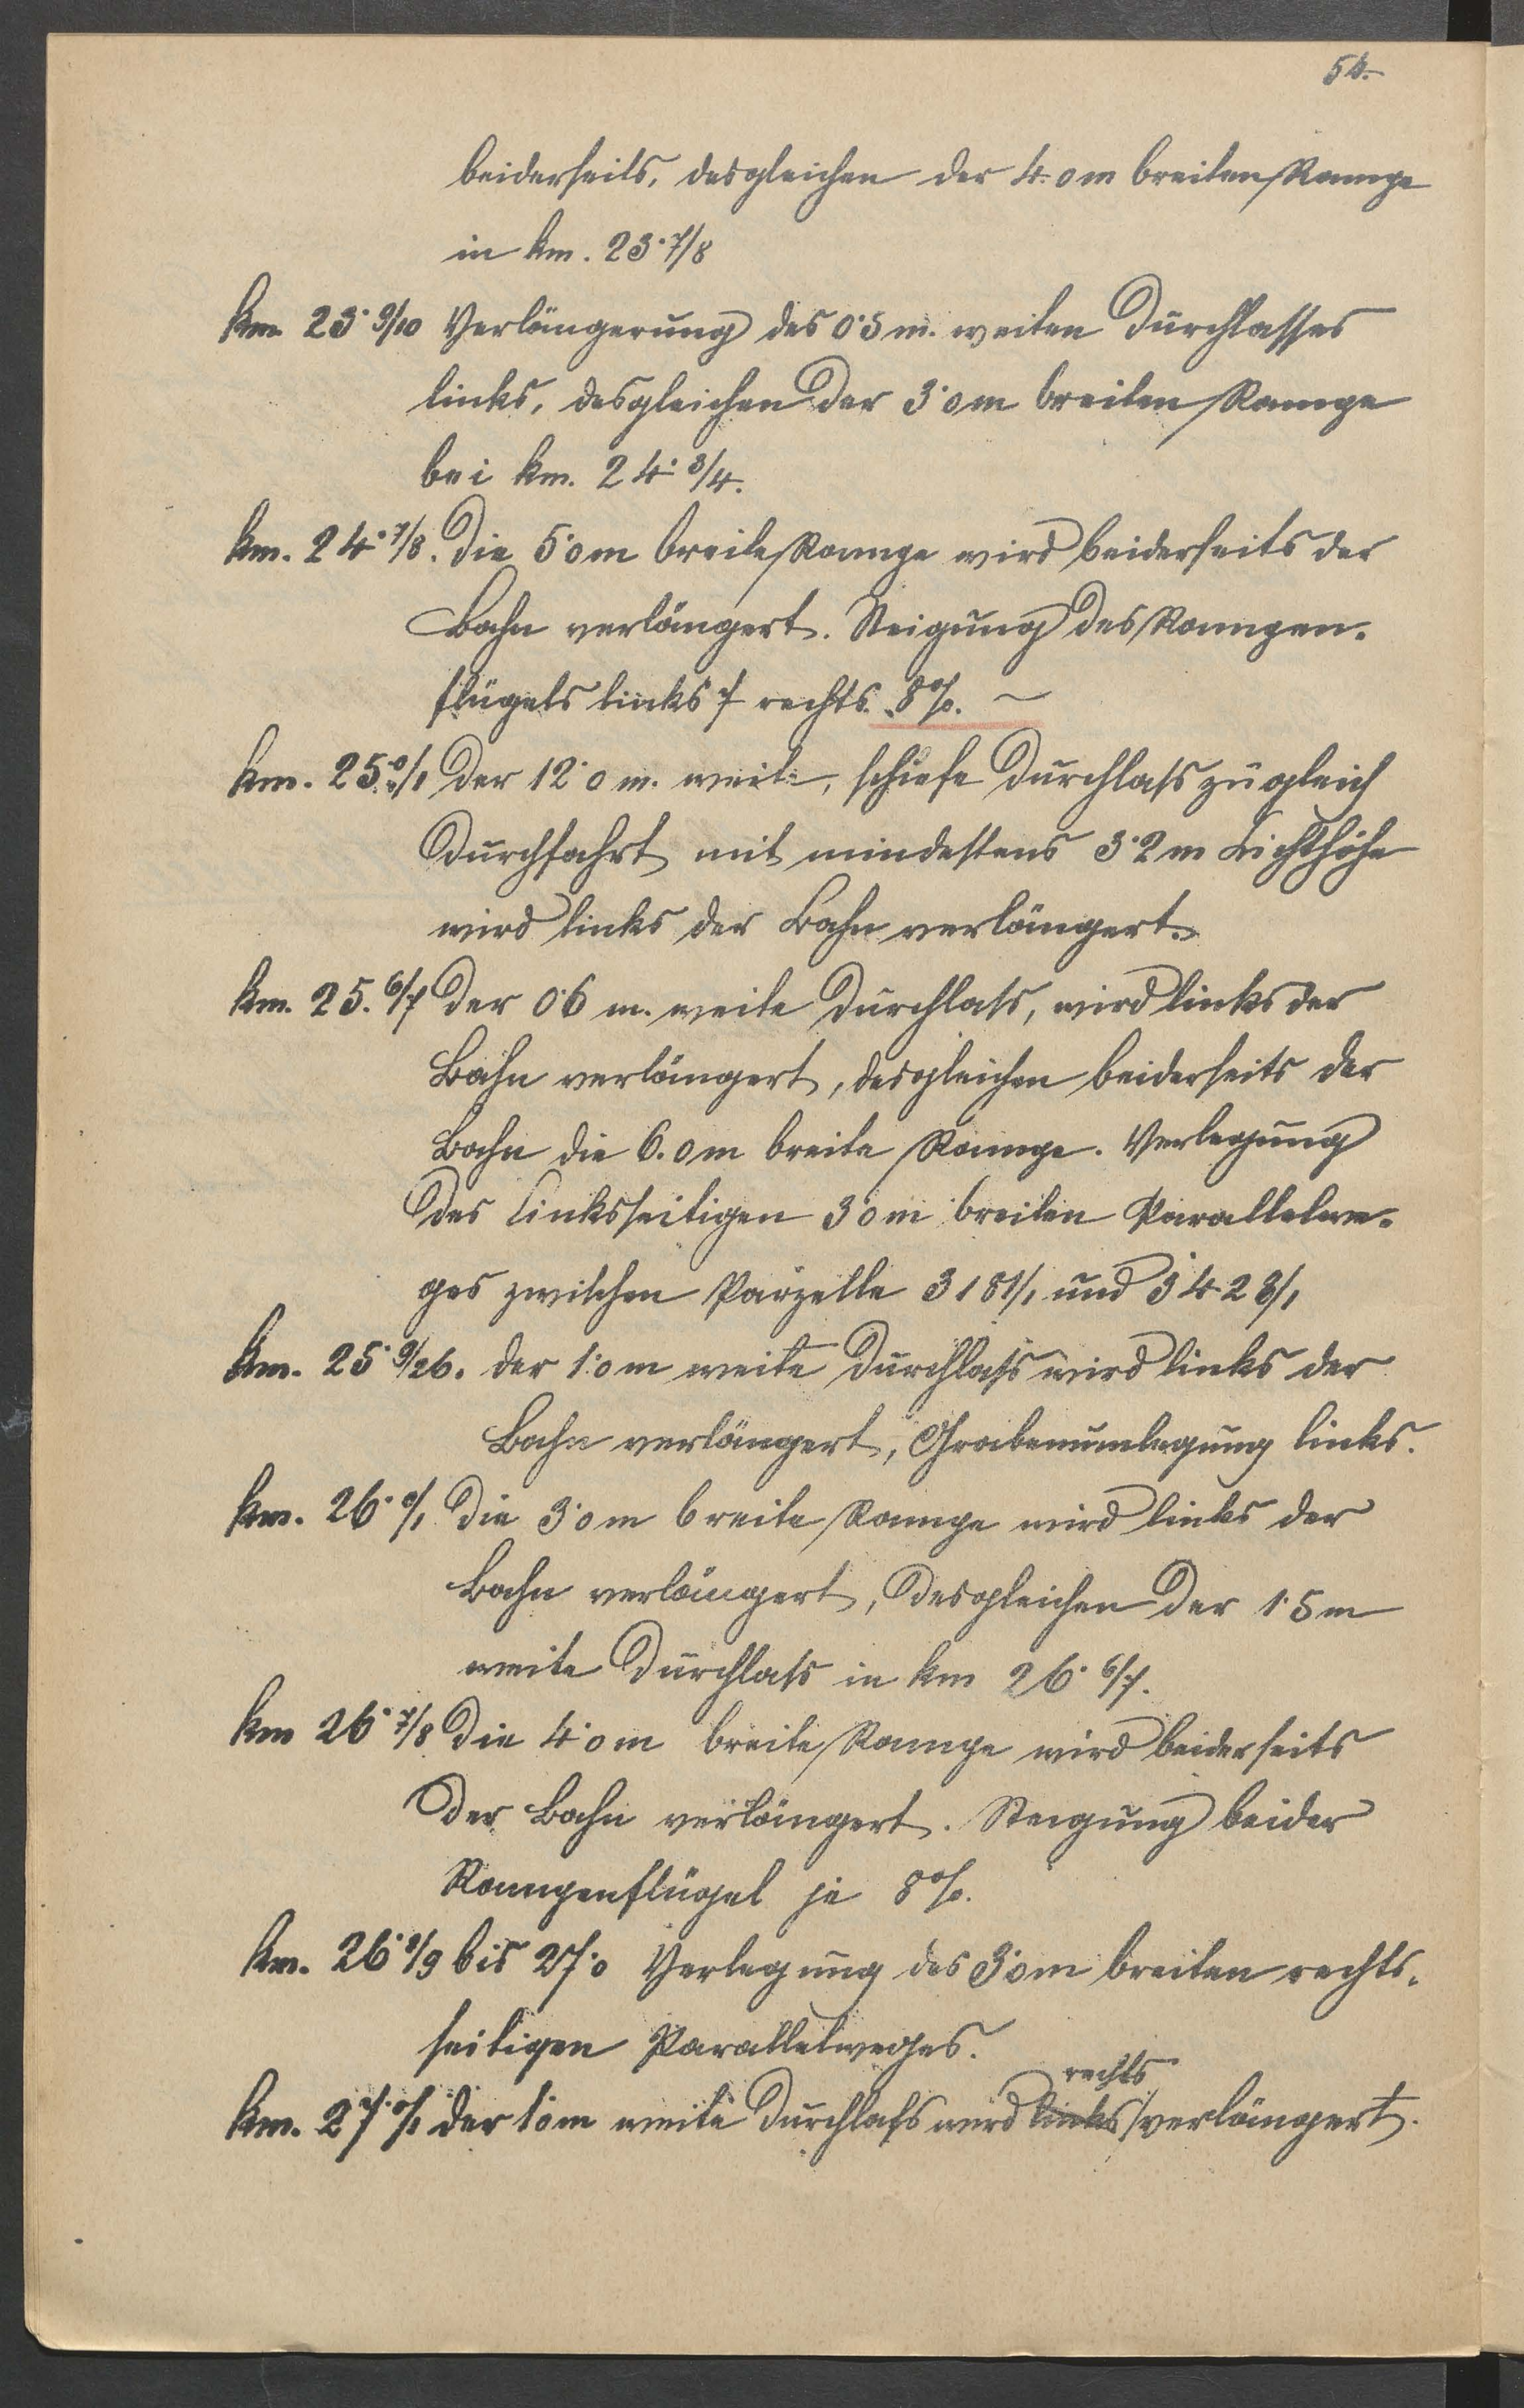 54.
beiderseits, desgleichen der 4·0m breiten Rampe
in km. 23·7/8
km. 23·9/10 Verlängerung des 0·5 m. weiten Durchlasses
links, desgleichen der 3·0m breiten Rampe
bei km. 24·3/4.
km. 24·7/8. Die 5·0m breite Rampe wird beiderseits der
Bahn verlängert. Steigung des Rampen-
flügels links 7 rechts 8%. ~
km. 25·0/1 Der 12·0 m. weite, schiefe Durchlass zugleich
Durchfahrt mit mindestens 3·2m Lichthöhe
wird links der Bahn verlängert.
km. 25.6/7 Der 0·6 m. weite Durchlass, wird links der
Bahn verlängert, desgleichen beiderseits der
Bahn die 6.0m breite Rampe. Verlegung
des linksseitigen 3·0m breiten Parallelwe-
ges zwischen Parzelle 3181/1 und 3423/1
km. 25·9/26. der 1·0m weite Durchlass wird links der
Bahn verlängert, Grabenumlegung links.
km. 26·0/1 Die 3·0m breite Rampe wird links der
Bahn verlängert, desgleichen der 1·5m
weite Durchlass in km 26·6/7.
km 26·7/8 Die 4·0m breite Rampe wird beiderseits
der Bahn verlängert. Steigung beider
Rampenflügel je 8%.
km. 26·8/9 bis 27·0 Verlegung des 3·0m breiten rechts-
seitigen Parallelweges.
rechts
km. 27·0/1 der 1·0m weite Durchlass wird links verlängert.